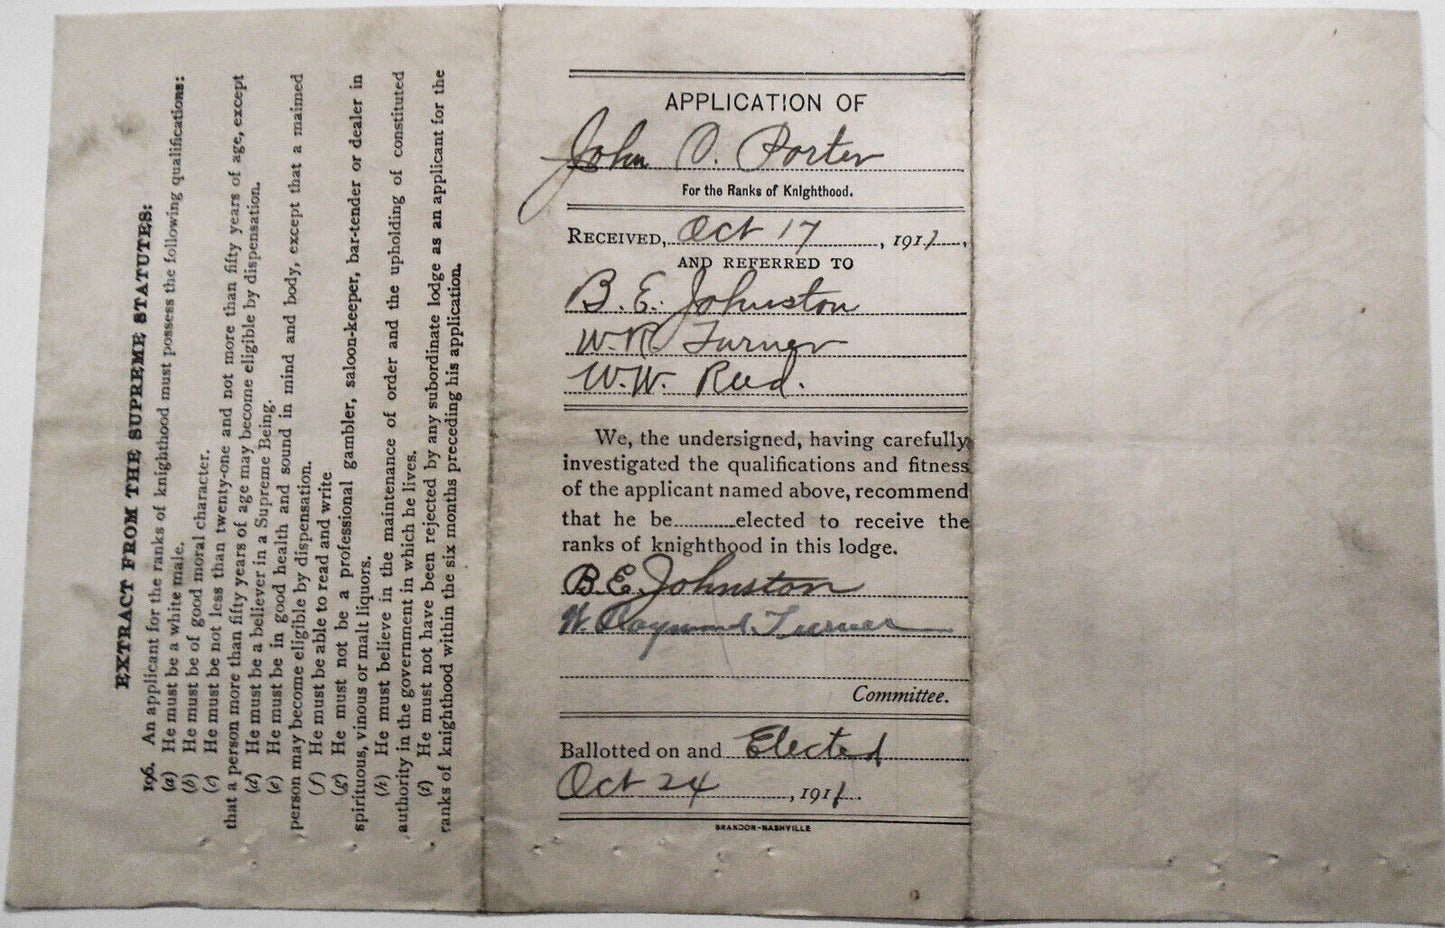 EXTRACT FROM THE SUPREME STATUTES:
196. An applicant for the ranks of knighthood must possess the following qualifications:
(a) He must be a white male.
(b) He must be of good moral character.
(c) He must be not less than twenty-one and not more than fifty years of age, except
that a person more than fifty years of age may become eligible by dispensation.
(d) He must be a believer in a Supreme Being.
(e) He must be in good health and sound in mind and body, except that a maimed
person may become eligible by dispensation.
(f) He must be able to read and write
(g) He must not be a professional gambler, saloon-keeper, bar-tender or dealer in
spirituous, vinous or malt liquors.
(h) He must believe in the maintenance of order and the upholding of constituted
authority in the government in which he lives.
(i) He must not have been rejected by any subordinate lodge as an applicant for the
ranks of knighthood within the six months preceding his application.
APPLICATION OF
John C. Porter
For the Ranks of Knighthood.
RECEIVED, Oct 17, 1911,
AND REFERRED TO
B. E. Johnston
W. R. Turner
W. W. Reed.
We, the undersigned, having carefully
investigated the qualifications and fitness
of the applicant named above, recommend
that he be............elected to receive the
ranks of knighthood in this lodge.
B. E. Johnston
W. Raymond Turner
Committee.
Ballotted on and Elected
Oct 24, 1911.
BRANDON-NASHVILLE